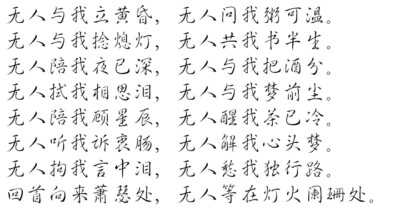 无人与我立黄昏，无人问我粥可温。
无人与我捻熄灯，无人共我书半生。
无人陪我夜已深，无人与我把酒分。
无人拭我相思泪，无人与我梦前尘。
无人陪我顾星辰，无人醒我茶已冷。
无人听我诉衷肠，无人解我心头梦。
无人拘我言中泪，无人愁我独行路。
回首向来萧瑟处，无人等在灯火阑珊处。